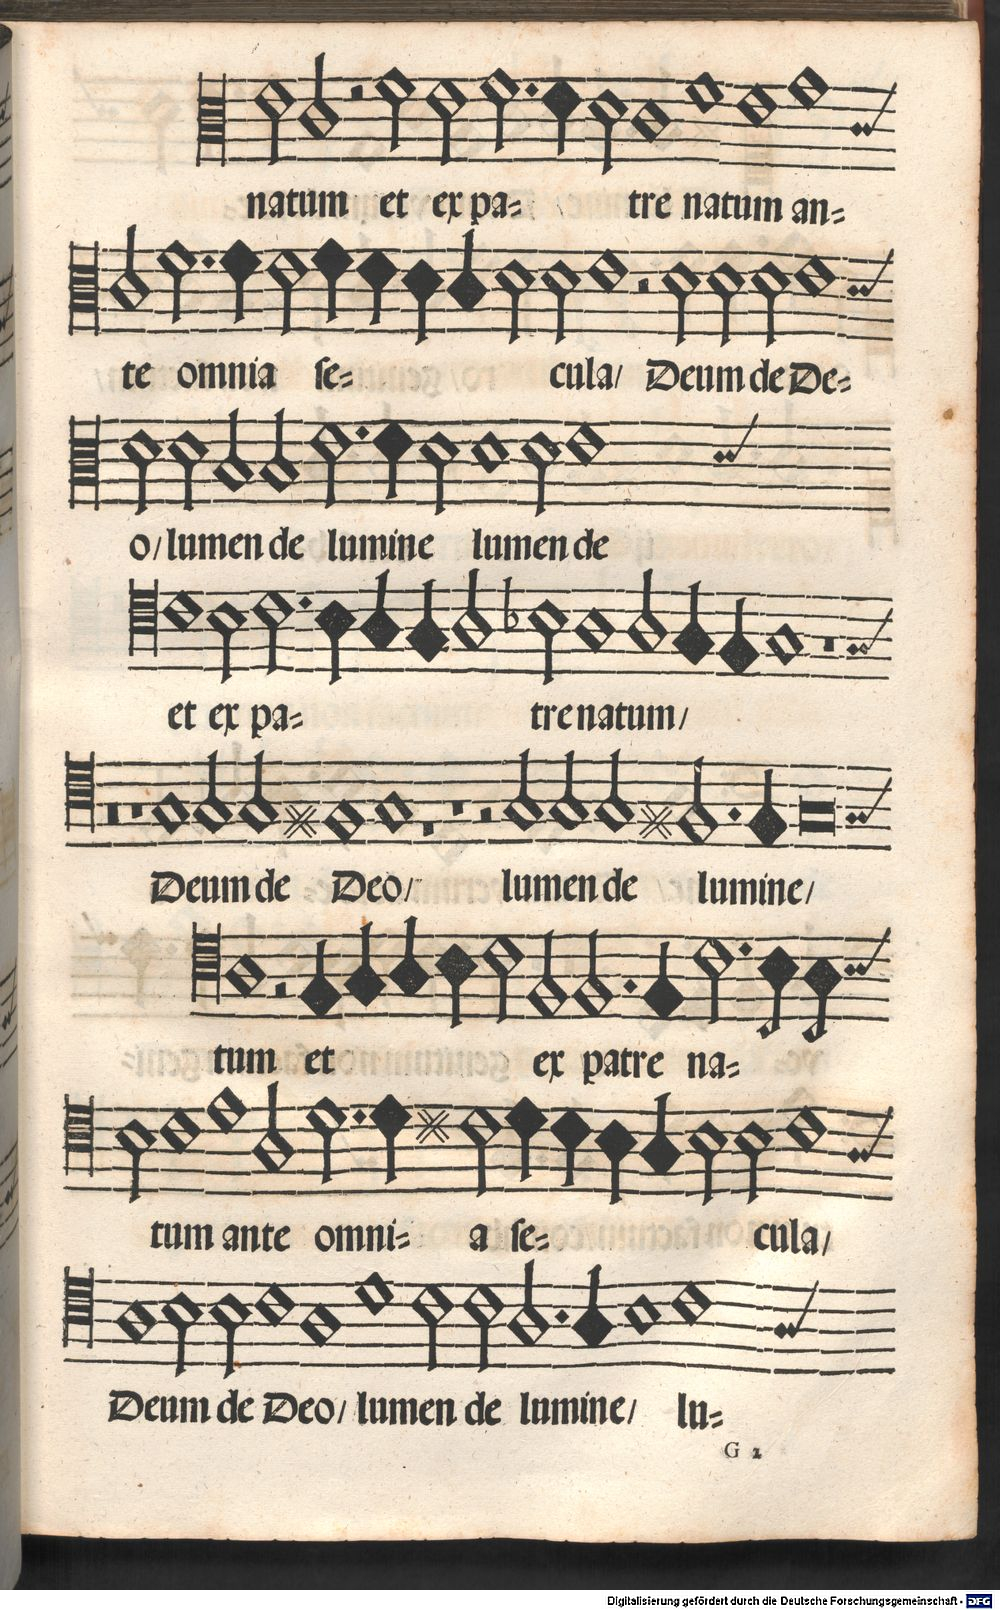 natum et ex pa= / tre natum an=
te omnia se= cula/ Deum de De=
o/ lumen de lumine lumen de
et ex pa= tre natum/
Deum de Deo/ lumen de lumine/
tum et ex patre na=
tum ante omni= a se= cula/
Deum de Deo/ lumen de lumine/ lu=
G 2
Digitalisierung gefördert durch die Deutsche Forschungsgemeinschaft - DFG